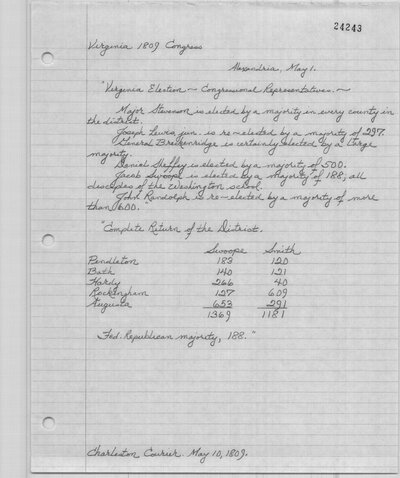 24243
Virginia 1809 Congress
Alexandria, May 1.
"Virginia Election ~ Congressional Representatives. ~
Major Stevenson is elected by a majority in every county in
the district.
Joseph Lewis, jun. is re-elected by a majority of 297.
General Breckenridge is certainly elected by a large
majority.
Daniel Sheffey is elected by a majority of 500.
Jacob Swoope is elected by a majority of 188; all
disciples of the Washington school.
John Randolph is re-elected by a majority of more
than 600."
"Complete Return of the District.
Swoope Smith
Pendleton 183 120
Bath 140 121
Hardy 266 40
Rockingham 127 609
Augusta 653 291
1369 1181
Fed. Republican majority, 188."
Charleston Courier. May 10, 1809.